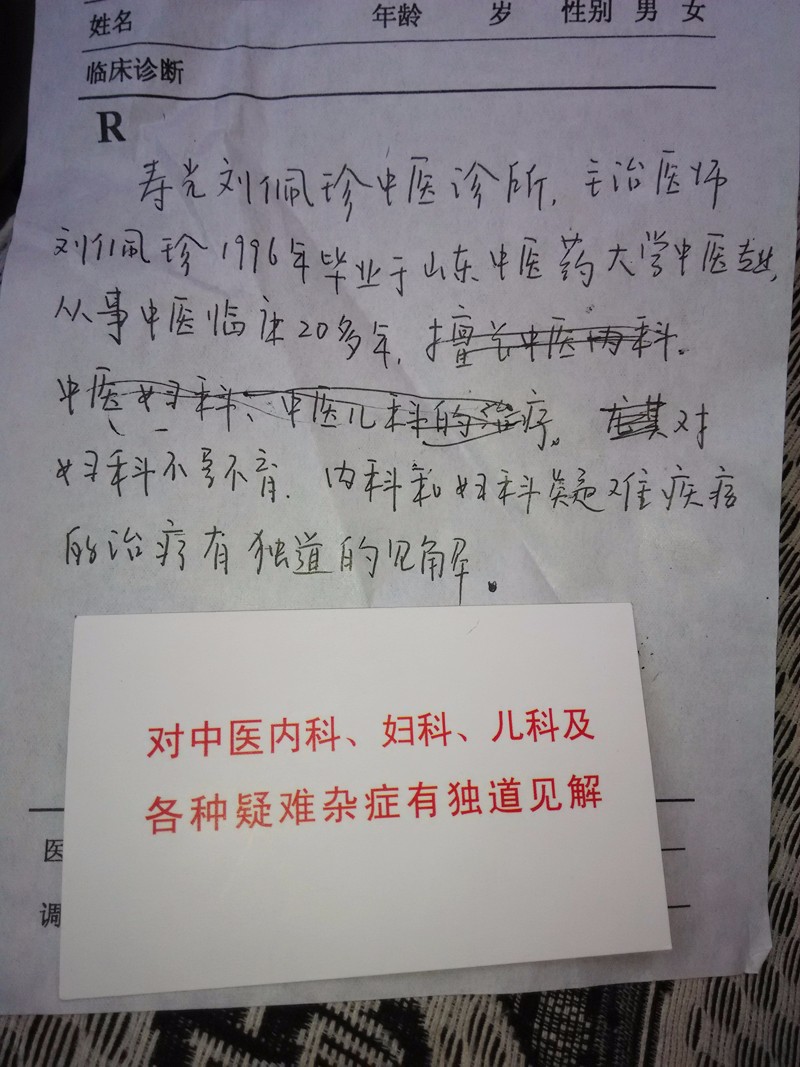 姓名 年龄 岁 性别 男 女
临床诊断
R
寿光刘佩珍中医诊所，主治医师
刘佩珍1996年毕业于山东中医药大学中医专业，
从事中医临床20多年，擅长中医内科。
中医妇科、中医儿科的治疗。尤其对
妇科不孕不育．内科和妇科疑难疾病
的治疗有独道的见解。
对中医内科、妇科、儿科及
各种疑难杂症有独道见解
医
调